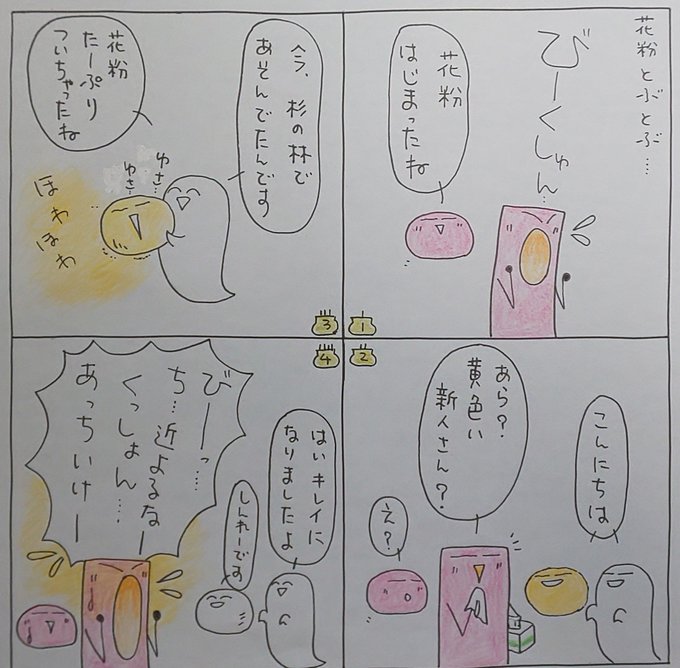 花粉とぶとぶ…
びーくしゅん…
花粉
はじまったね
1
こんにちは
あら?
黄色い
新人さん?
え?
2
今、杉の林で
あそんでたんです
花粉
たーぷり
ついちゃったね
ゆさ…
ゆさ…
ほわ
ほわ
3
はいキレイに
なりましたよ
しんれーです
びーっ…
ち…近よるなー
くっしょん…
あっちいけー
4